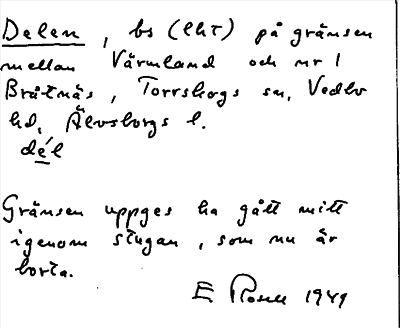 Delen, bs (lht) på gränsen
mellan Värmland och nr 1
Bråtnäs, Torrskogs sn, Vedbo
hd, Älvsborgs l.
dé̲l
Gränsen uppges ha gått mitt
igenom stugan, som nu är
borta.
E Rosell 1949